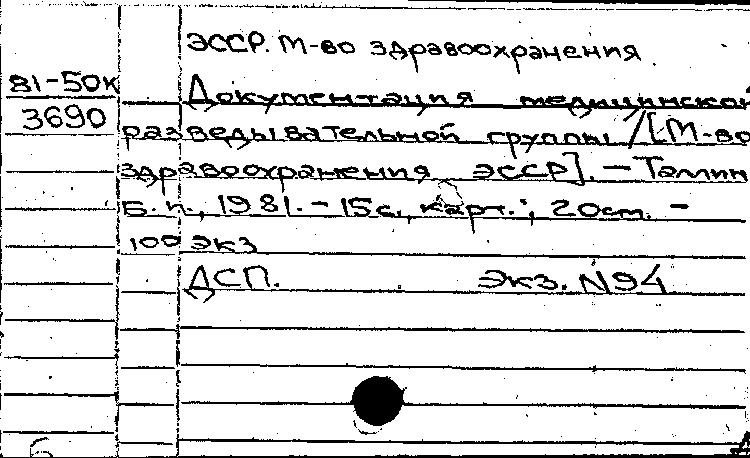 ЭССР. М-во здравоохранения
81-50к
Документация медицинской
3690
разведывательной группы / [М-во
здравоохранения ЭССР]. — Таллин
Б.и., 1981. - 15с., карт.; 20см. -
100 экз
ДСП. Экз. N94